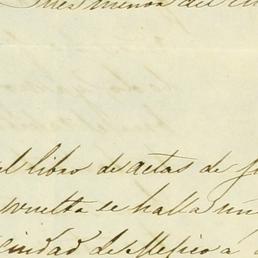 menor del
al libro de actas de
vuelta se halla un
ciudad de Mexico á